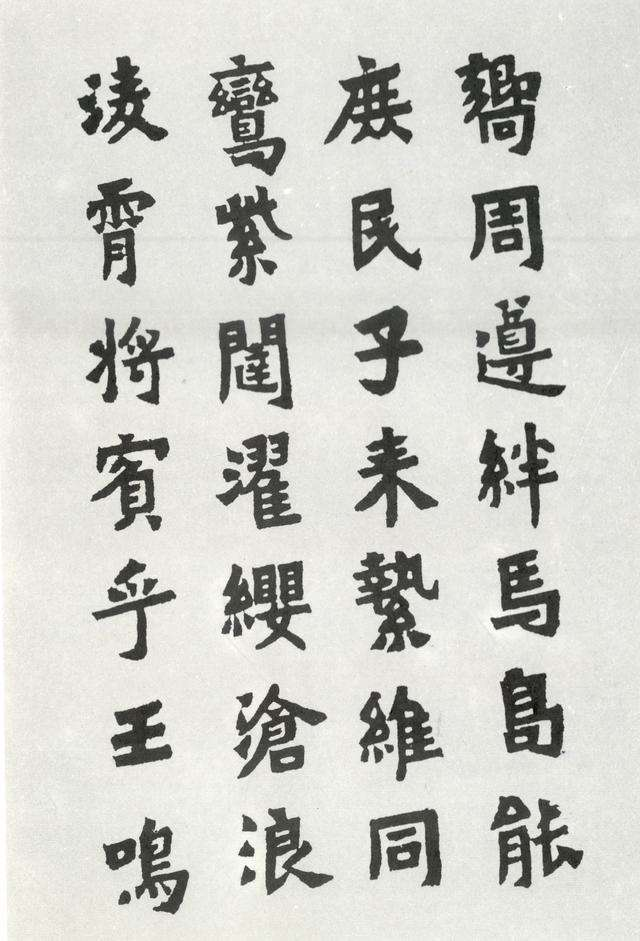 周遵絆馬能
庶民子来縶維同
鸞紫闥濯纓滄浪
淩霄將賓乎王鳴